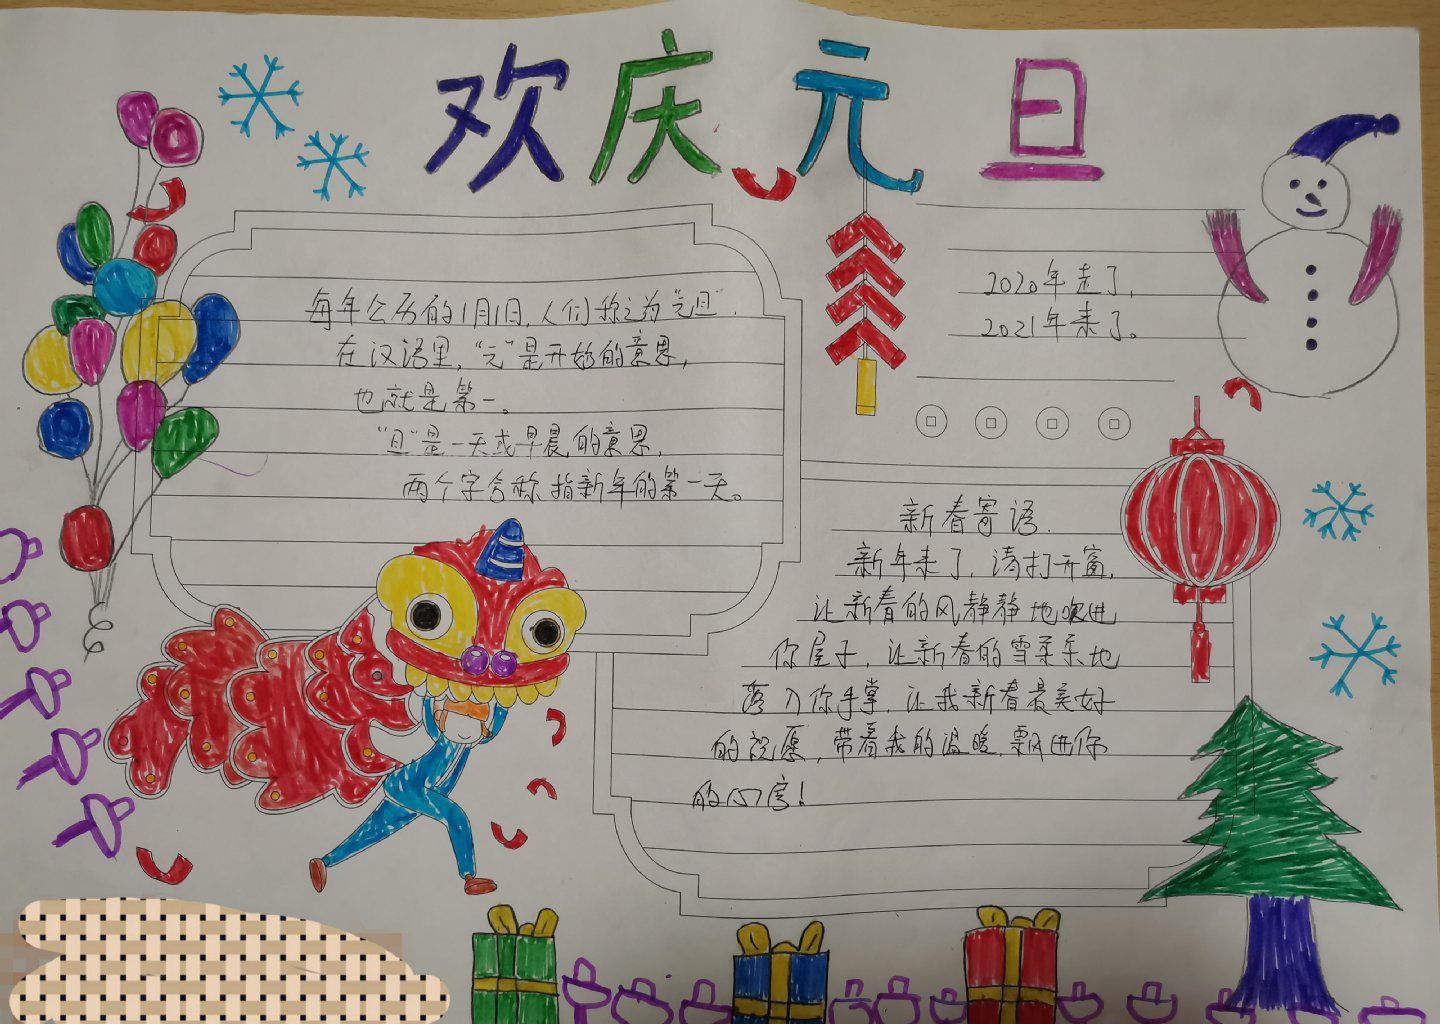 欢庆元旦
每年公历的1月1日,人们称之为“元旦”.
在汉语里,“元”是开始的意思,
也就是第一。
“旦”是一天或早晨的意思,
两个字合称指新年的第一天。
2020年走了,
2021年来了。
新春寄语.
新年来了,请打开窗,
让新春的风静静地吹进
你屋子,让新春的雪柔柔地
落入你手掌,让我新春最美好
的祝愿,带着我的温暖,飘进你
的心房!